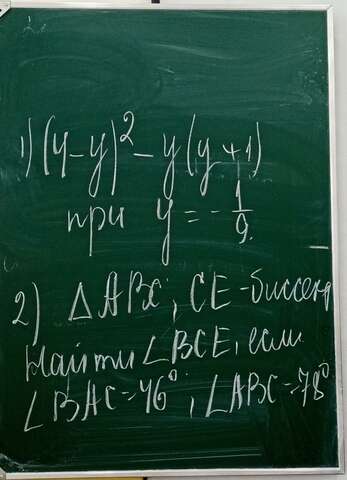 1) (4-y)² - y(y+1)
при y = -1/9.
2) △ABC, CE-биссект
Найти ∠BCE, если
∠BAC=46°, ∠ABC=78°